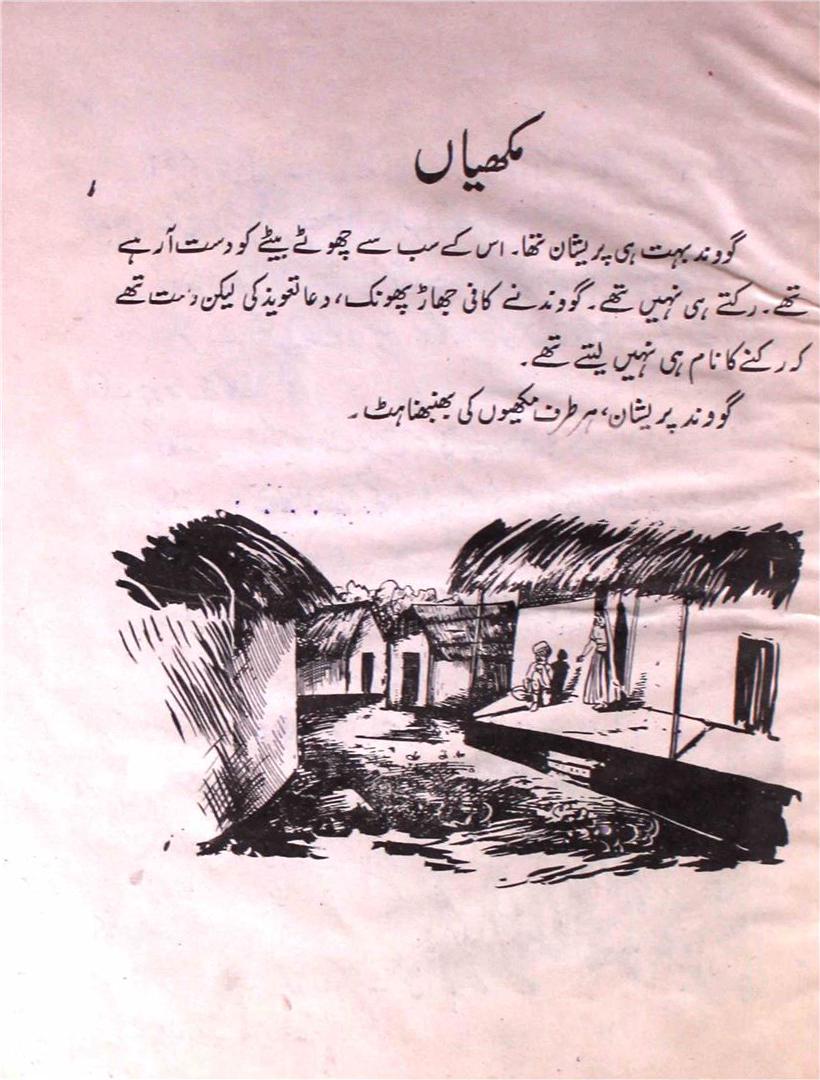 مکھیاں
گووند بہت ہی پریشان تھا۔ اس کے سب سے چھوٹے بیٹے کو دست آرہے
تھے۔ رکتے ہی نہیں تھے۔ گووند نے کافی جھاڑ پھونک، دعا تعویذ کی لیکن دست تھے
کہ رکنے کا نام ہی نہیں لیتے تھے۔
گووند پریشان، ہر طرف مکھیوں کی بھنبھناہٹ۔